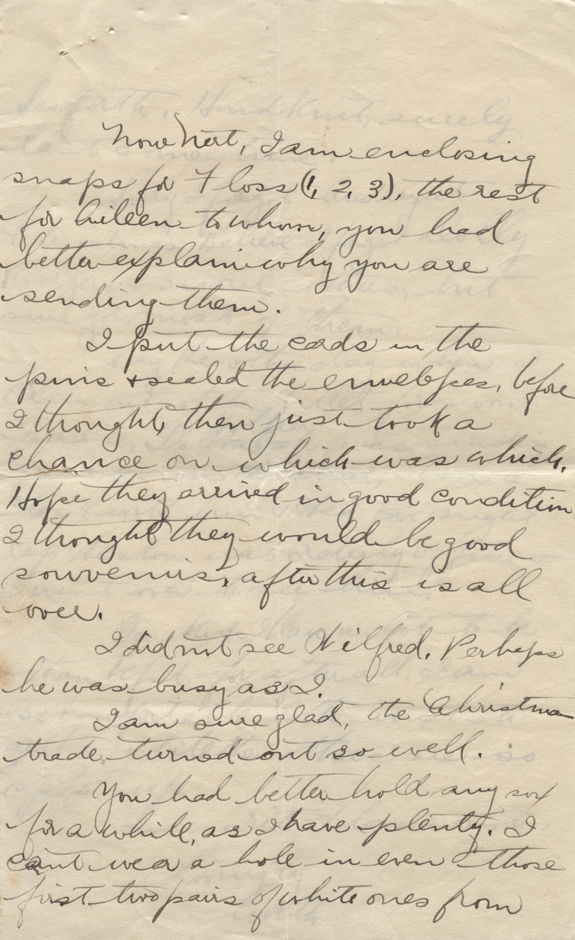 Now Nert, I am enclosing
snaps for Floss (1, 2, 3), the rest
for Aileen to whom, you had
better explain why you are
sending them.
I put the cards in the
pins & sealed the envelopes, before
I thought, then just took a
chance on which was which.
Hope they arrived in good condition
I thought they would be good
souvenirs, after this is all
over.
I didn't see Wilfred. Perhaps
he was busy as I.
I am sure glad, the Christmas
trade, turned out so well.
You had better hold any sox
for a while, as I have plenty. I
can't wear a hole in even those
first two pairs of white ones from